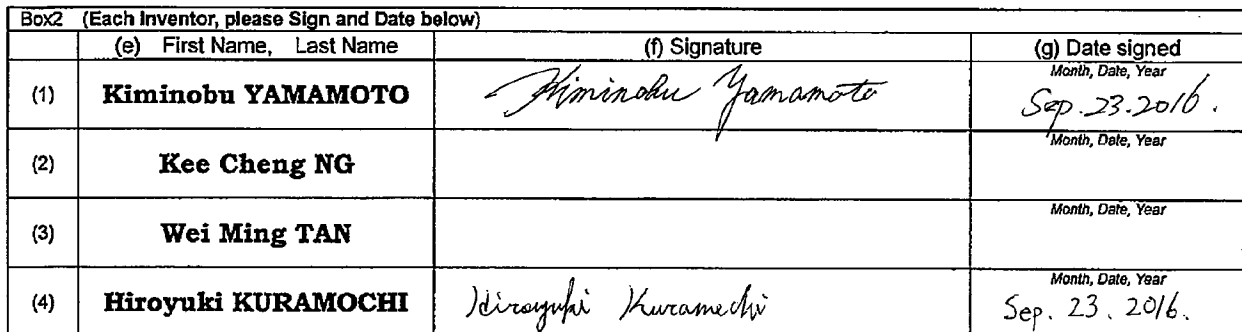 Box2 (Each Inventor, please Sign and Date below)
(e) First Name, Last Name (f) Signature (g) Date signed
(1) Kiminobu YAMAMOTO Kiminobu Yamamoto Month, Date, Year
Sep. 23. 2016.
(2) Kee Cheng NG Month, Date, Year
(3) Wei Ming TAN Month, Date, Year
(4) Hiroyuki KURAMOCHI Hiroyuki Kuramochi Month, Date, Year
Sep. 23. 2016.